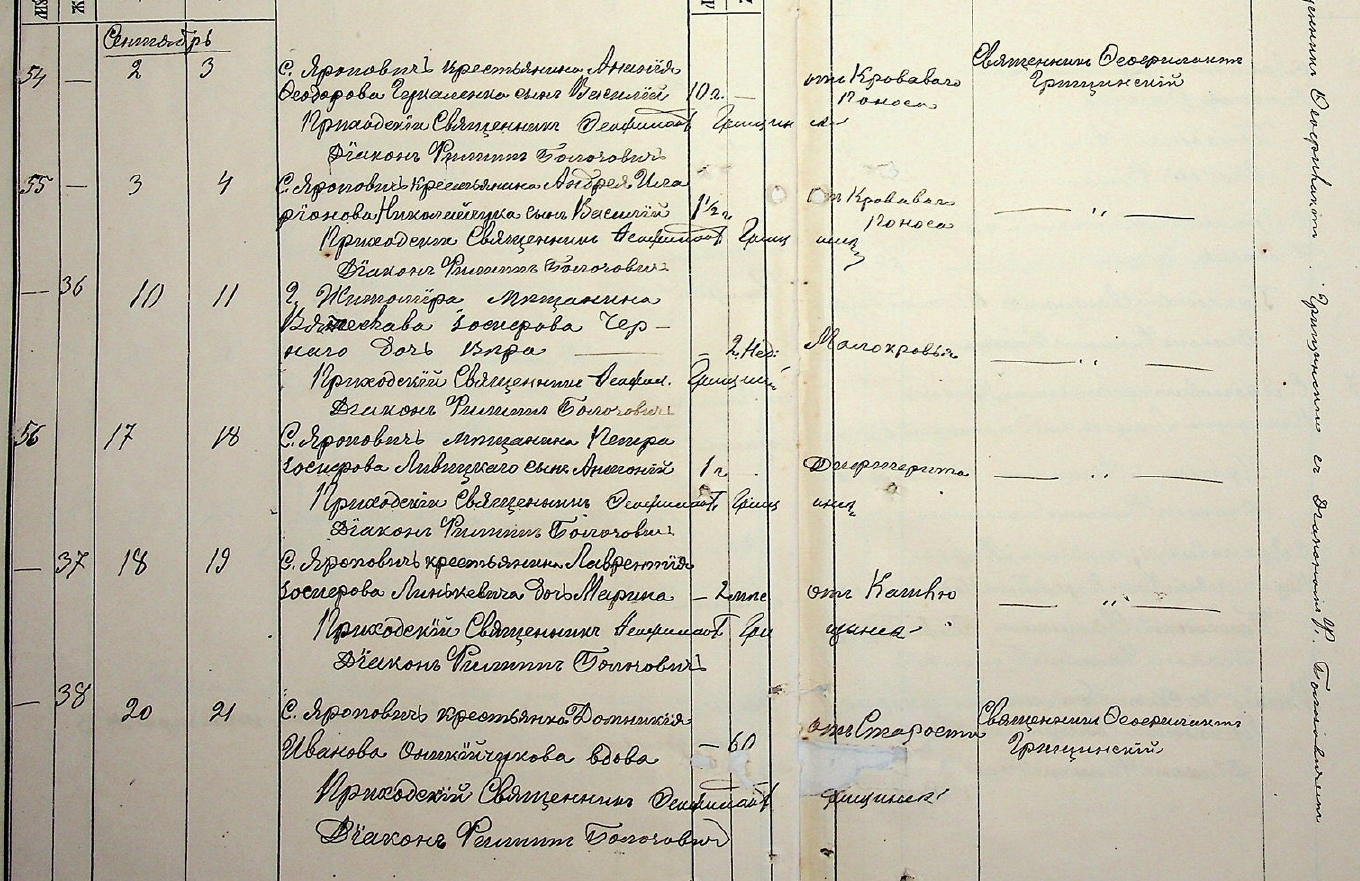 Сентябрь
54 — 2 3 С. Яроповичъ крестьянина
Ѳеодорова сынъ Василій 10 г. — отъ Кроваваго Поноса Священникъ Ѳеофилактъ Грищинскій
Приходскій Священникъ Ѳеофилактъ Грищинскій
Діаконъ Филиппъ
55 — 3 4 С. Яроповичъ крестьянина Андрея Ила
ріонова Николайчука сынъ Василій 1½ г. отъ Кроваваго Поноса — „ —
Приходскій Священникъ Ѳеофилактъ Грищ
Діаконъ Филиппъ
— 36 10 11 Г. Житомїра мѣщанина
Іосифова Чер-
наго дочь Вѣра — — 2 Нед: Малокровья — „ —
Приходскій Священникъ Ѳеофил. Грищин
Діаконъ Филиппъ
56 17 18 С. Яроповичъ мѣщанина Петра
Іосифова Ливицкаго сынъ Антоній 1 г. Дифтерита — „ —
Приходскій Священникъ Ѳеофилактъ Грищ
Діаконъ Филиппъ
— 37 18 19 С. Яроповичъ крестьянина Лаврентія
Іосифова Линкевича дочь Марина — 2 отъ Кашлю — „ —
Приходскій Священникъ Ѳеофилактъ Гри щинск
Діаконъ Филиппъ
— 38 20 21 С. Яроповичъ крестьянка Домникія
Иванова Оникійчукова вдова — 60 отъ Старости Священникъ Ѳеофилактъ Грищинскій
Приходскій Священникъ Ѳеофилактъ Грищинск
Діаконъ Филиппъ
Ѳеофилактъ Грищинскій съ Діакономъ Ф.